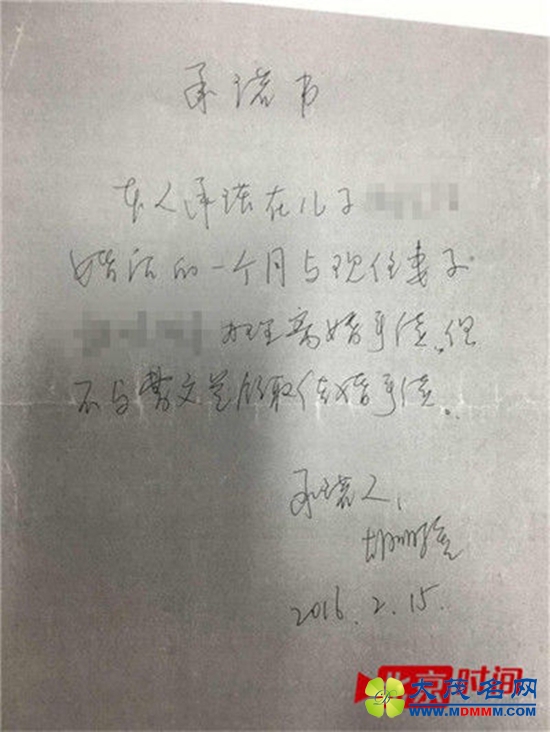 承诺书
本人承诺在儿子
婚后的一个月与现任妻子
办理离婚手续。但
不与曹文兰领取结婚手续。
承诺人：
胡
2016.2.15.
北京时间
大茂名网
WWW.MDMMM.COM